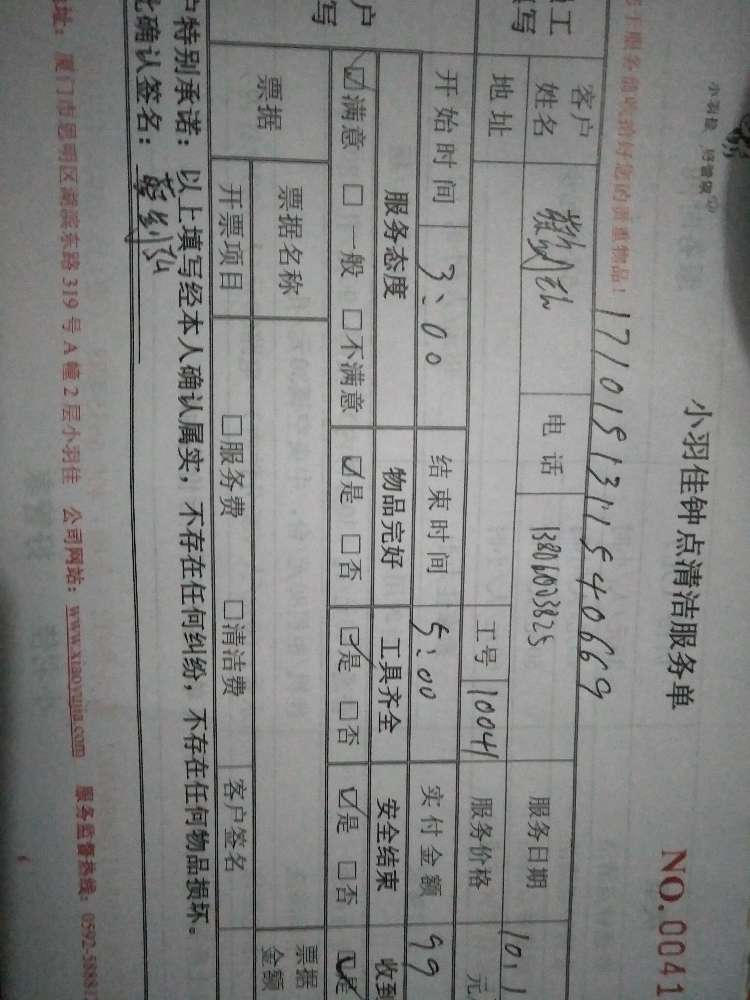 小羽佳钟点清洁服务单
NO.0041
17101913111540669
客户姓名 电话 13806003825 服务日期 10.1
地址 工号 10041 服务价格 元
开始时间 3:00 结束时间 5:00 实付金额 99
服务态度 物品完好 工具齐全 安全结束 收到
☑满意 □一般 □不满意 ☑是 □否 ☑是 □否 ☑是 □否 ☑是
票据 票据名称 票据金额
开票项目 □服务费 □清洁费 客户签名
户特别承诺：以上填写经本人确认属实，不存在任何纠纷，不存在任何物品损坏。
此确认签名：
地址：厦门市思明区湖滨东路319号A幢2层小羽佳 公司网站：www.xiaoyujia.com 服务监督热线：0592-5888